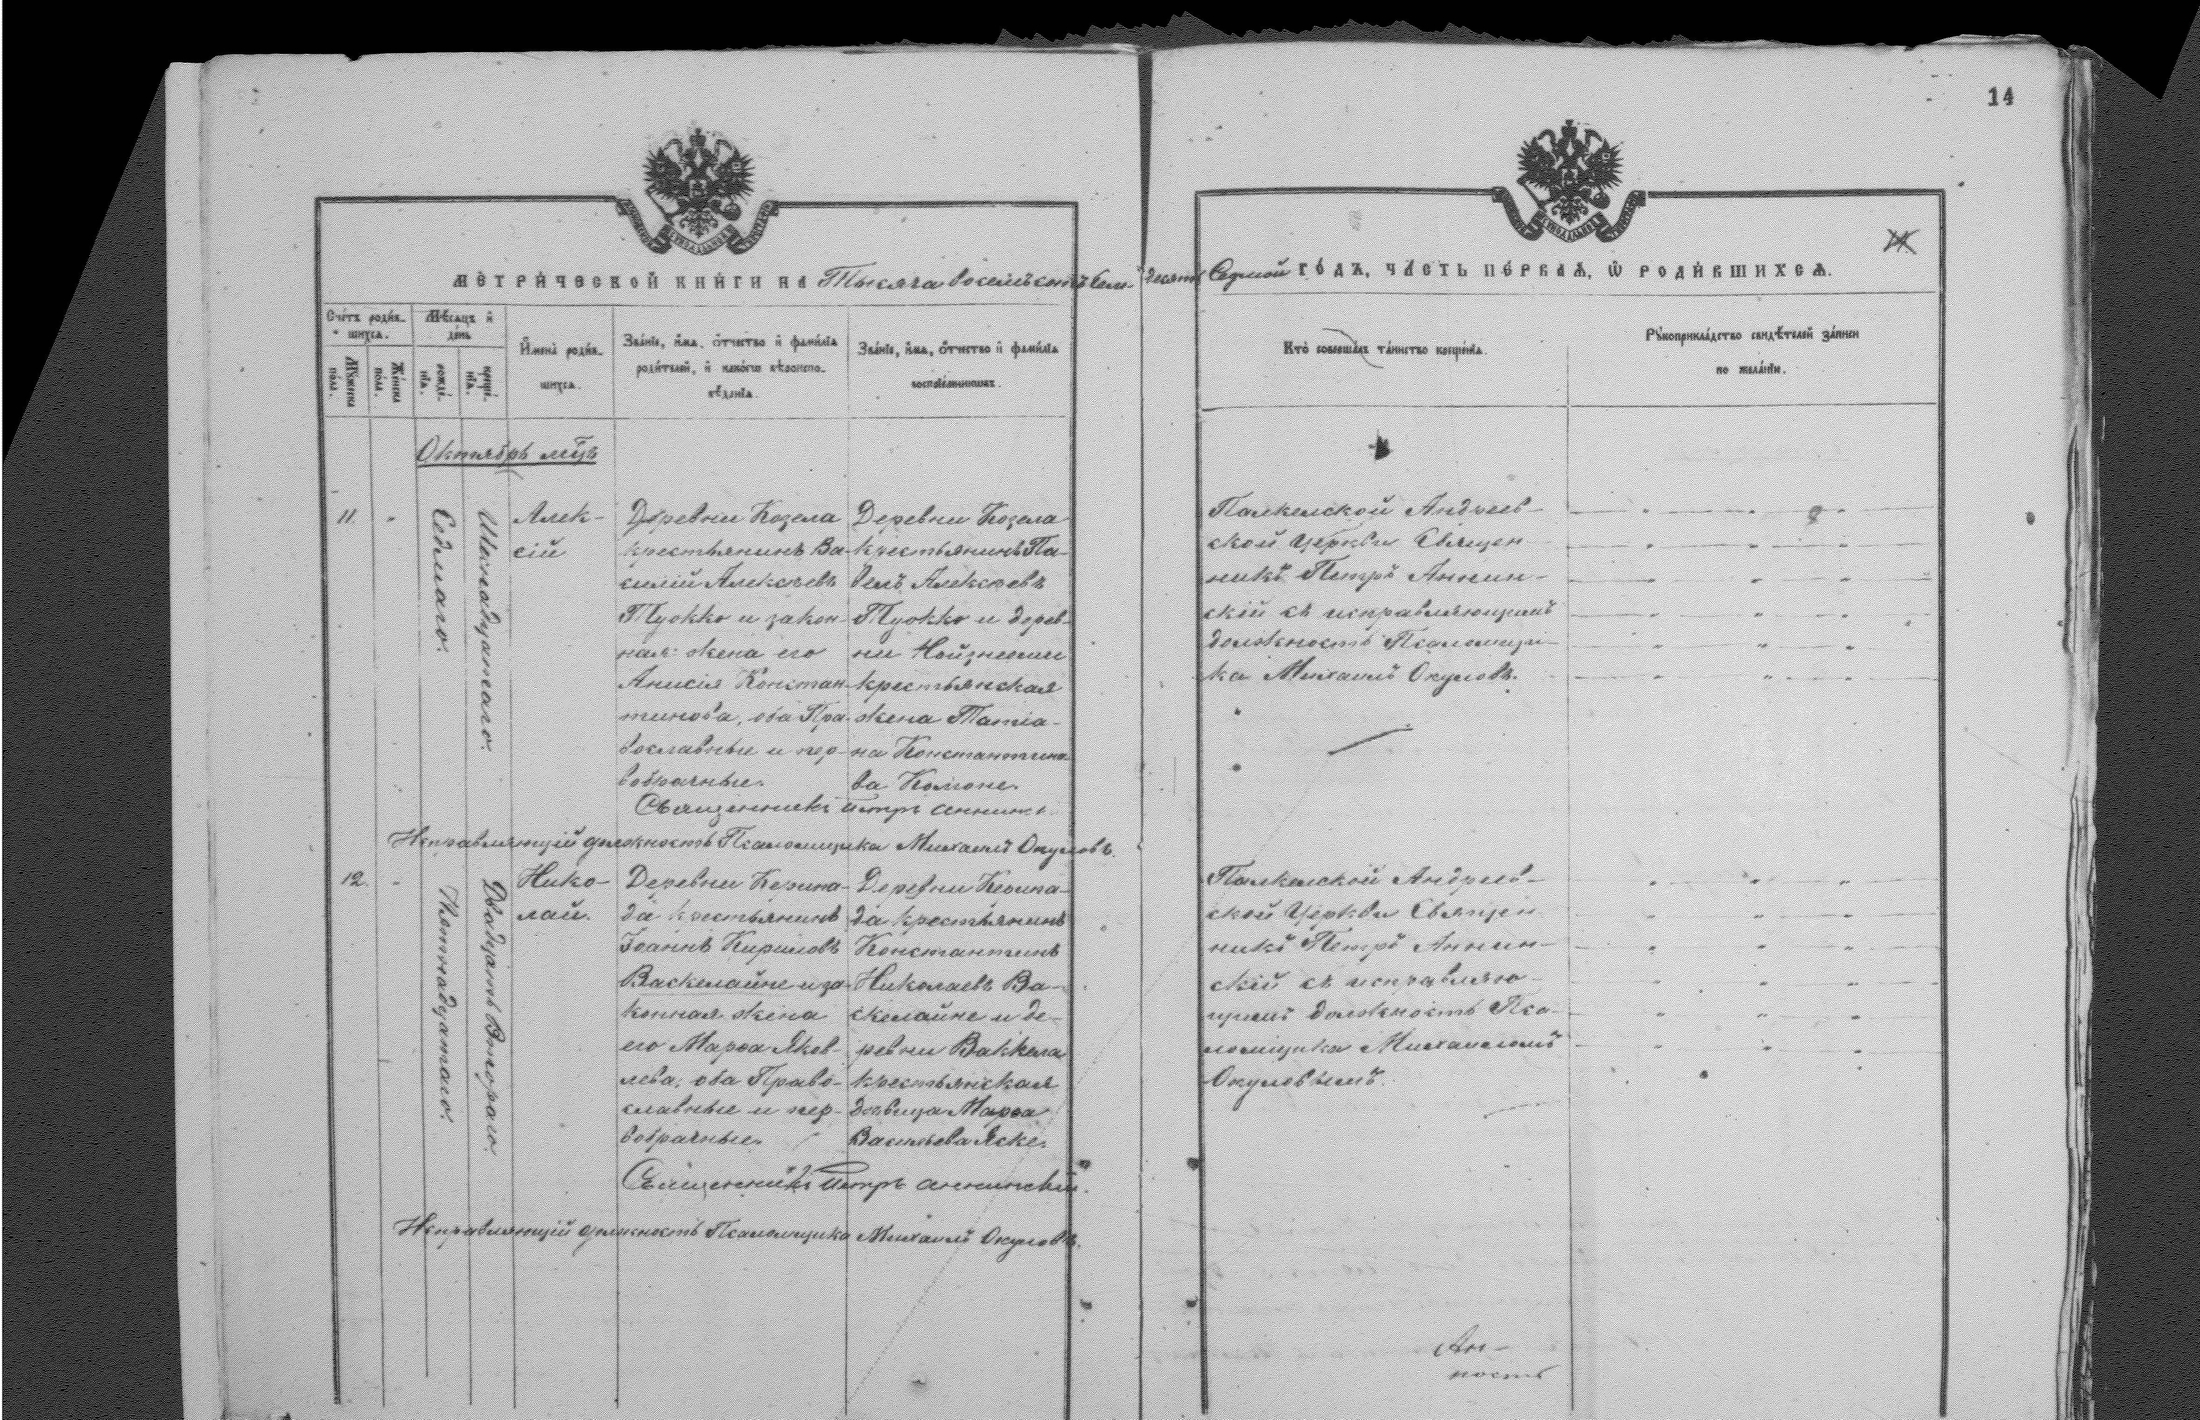 14
МЕТРИЧЕСКОЙ КНИГИ НА Тысяча восемьсотъ Семьдесятъ Седмой ГОДЪ, ЧАСТЬ ПЕРВАЯ, Ѡ РОДИВШИХСЯ.
Счетъ родив-
шихся.
Мѣсяцъ и
день
Имена родив-
шихся.
Званіе, имя, отчество и фамилія
родителей, и какого вѣроиспо-
вѣданія.
Званіе, имя, отчество и фамилія
воспріемниковъ.
Кто совершалъ таинство крещенія.
Рукоприкладство свидѣтелей записи
по желанію.
Мужеска
пола.
Женска
пола.
рожде-
нія.
креще-
нія.
Октябрь мцъ
11.
Седмаго.
Шестнадцатаго.
Алек-
сій
Деревни Козела
крестьянинъ Ва-
силій Алексѣевъ
Туокко и закон-
ная жена его
Анисія Констан-
тинова, оба Пра-
вославные и пер-
вобрачные.
Деревни Козела
крестьянинъ Па-
велъ Алексѣевъ
Туокко и дерев-
ни
крестьянская
жена Татіа-
на Константино-
ва
Палкельской Андреев-
ской Церкви Священ-
никъ Петръ Аннин-
скій съ исправляющимъ
должность Псаломщи-
ка Михаилъ Окуловъ.
Священникъ Петръ Аннинс
Исправляющій должность Псаломщика Михаилъ Окуловъ.
12.
Пятнадцатаго.
Двадцать Втораго.
Нико-
лай.
Деревни Керина-
да крестьянинъ
Іоаннъ Кириловъ
Васкелайне и за-
конная жена
его Марѳа Яков-
лева, оба Право-
славные и пер-
вобрачные.
Деревни Керина-
да крестьянинъ
Константинъ
Николаевъ Ва-
скелайне и де-
ревниВаккела
крестьянская
дѣвица Марѳа
Васильева Яске.
Палкельской Андреев-
ской Церкви Священ-
никъ Петръ Аннин-
скій съ исправляю-
щимъ должность Пса-
ломщика Михаиломъ
Окуловымъ.
Священникъ Петръ Аннинскій.
Исправляющій должность Псаломщика Михаилъ Окуловъ.
Ан-
ность